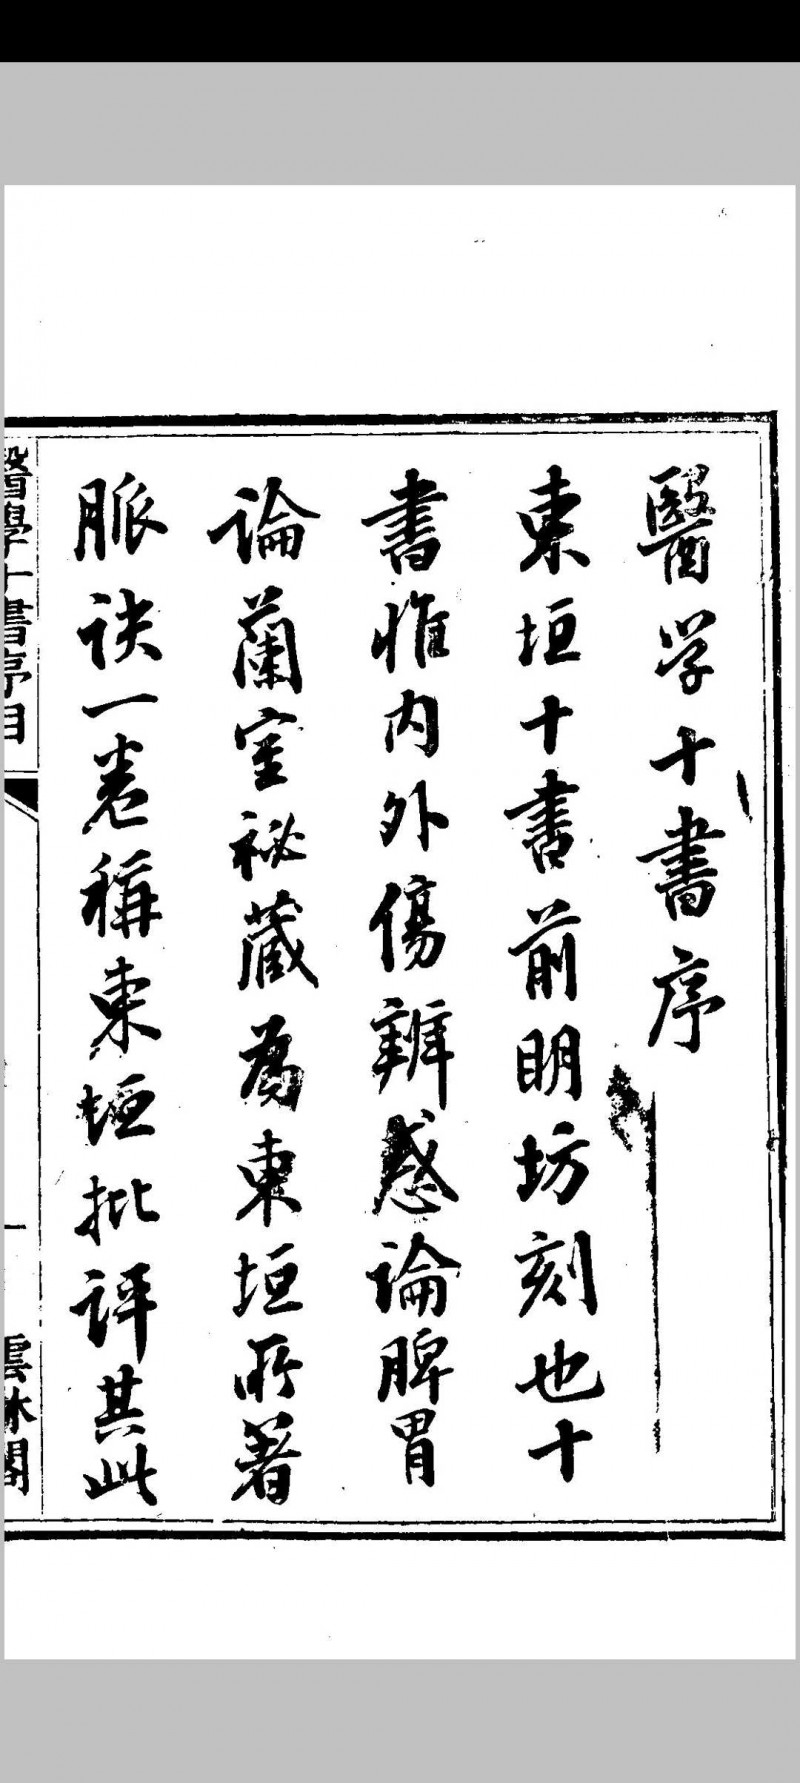 醫学十書序
東垣十書前明坊刻也十
書惟内外傷辨惑論脾胃
論蘭室祕藏為東垣所著
脈诀一卷稱東垣批評其此
醫學十書序目
一
雲林閣